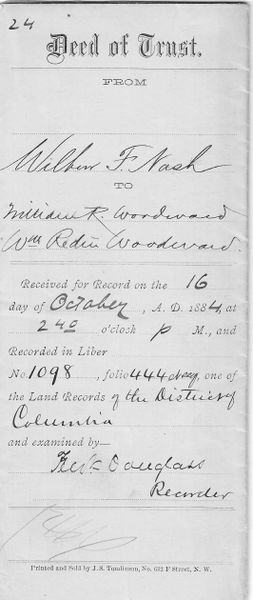 24
Deed of Trust.
FROM
Wilbur F. Nash
TO
William R. Woodward
Wm Redin Woodward.
Received for Record on the 16
day of October, A. D. 1884, at
2 40 o'clock P M., and
Recorded in Liber
No. 1098, folio 444 one of
the Land Records of the District of
Columbia
and examined by—
Fredk Douglass
Recorder
Printed and Sold by J. S. Tomlinson, No. 632 F Street, N. W.